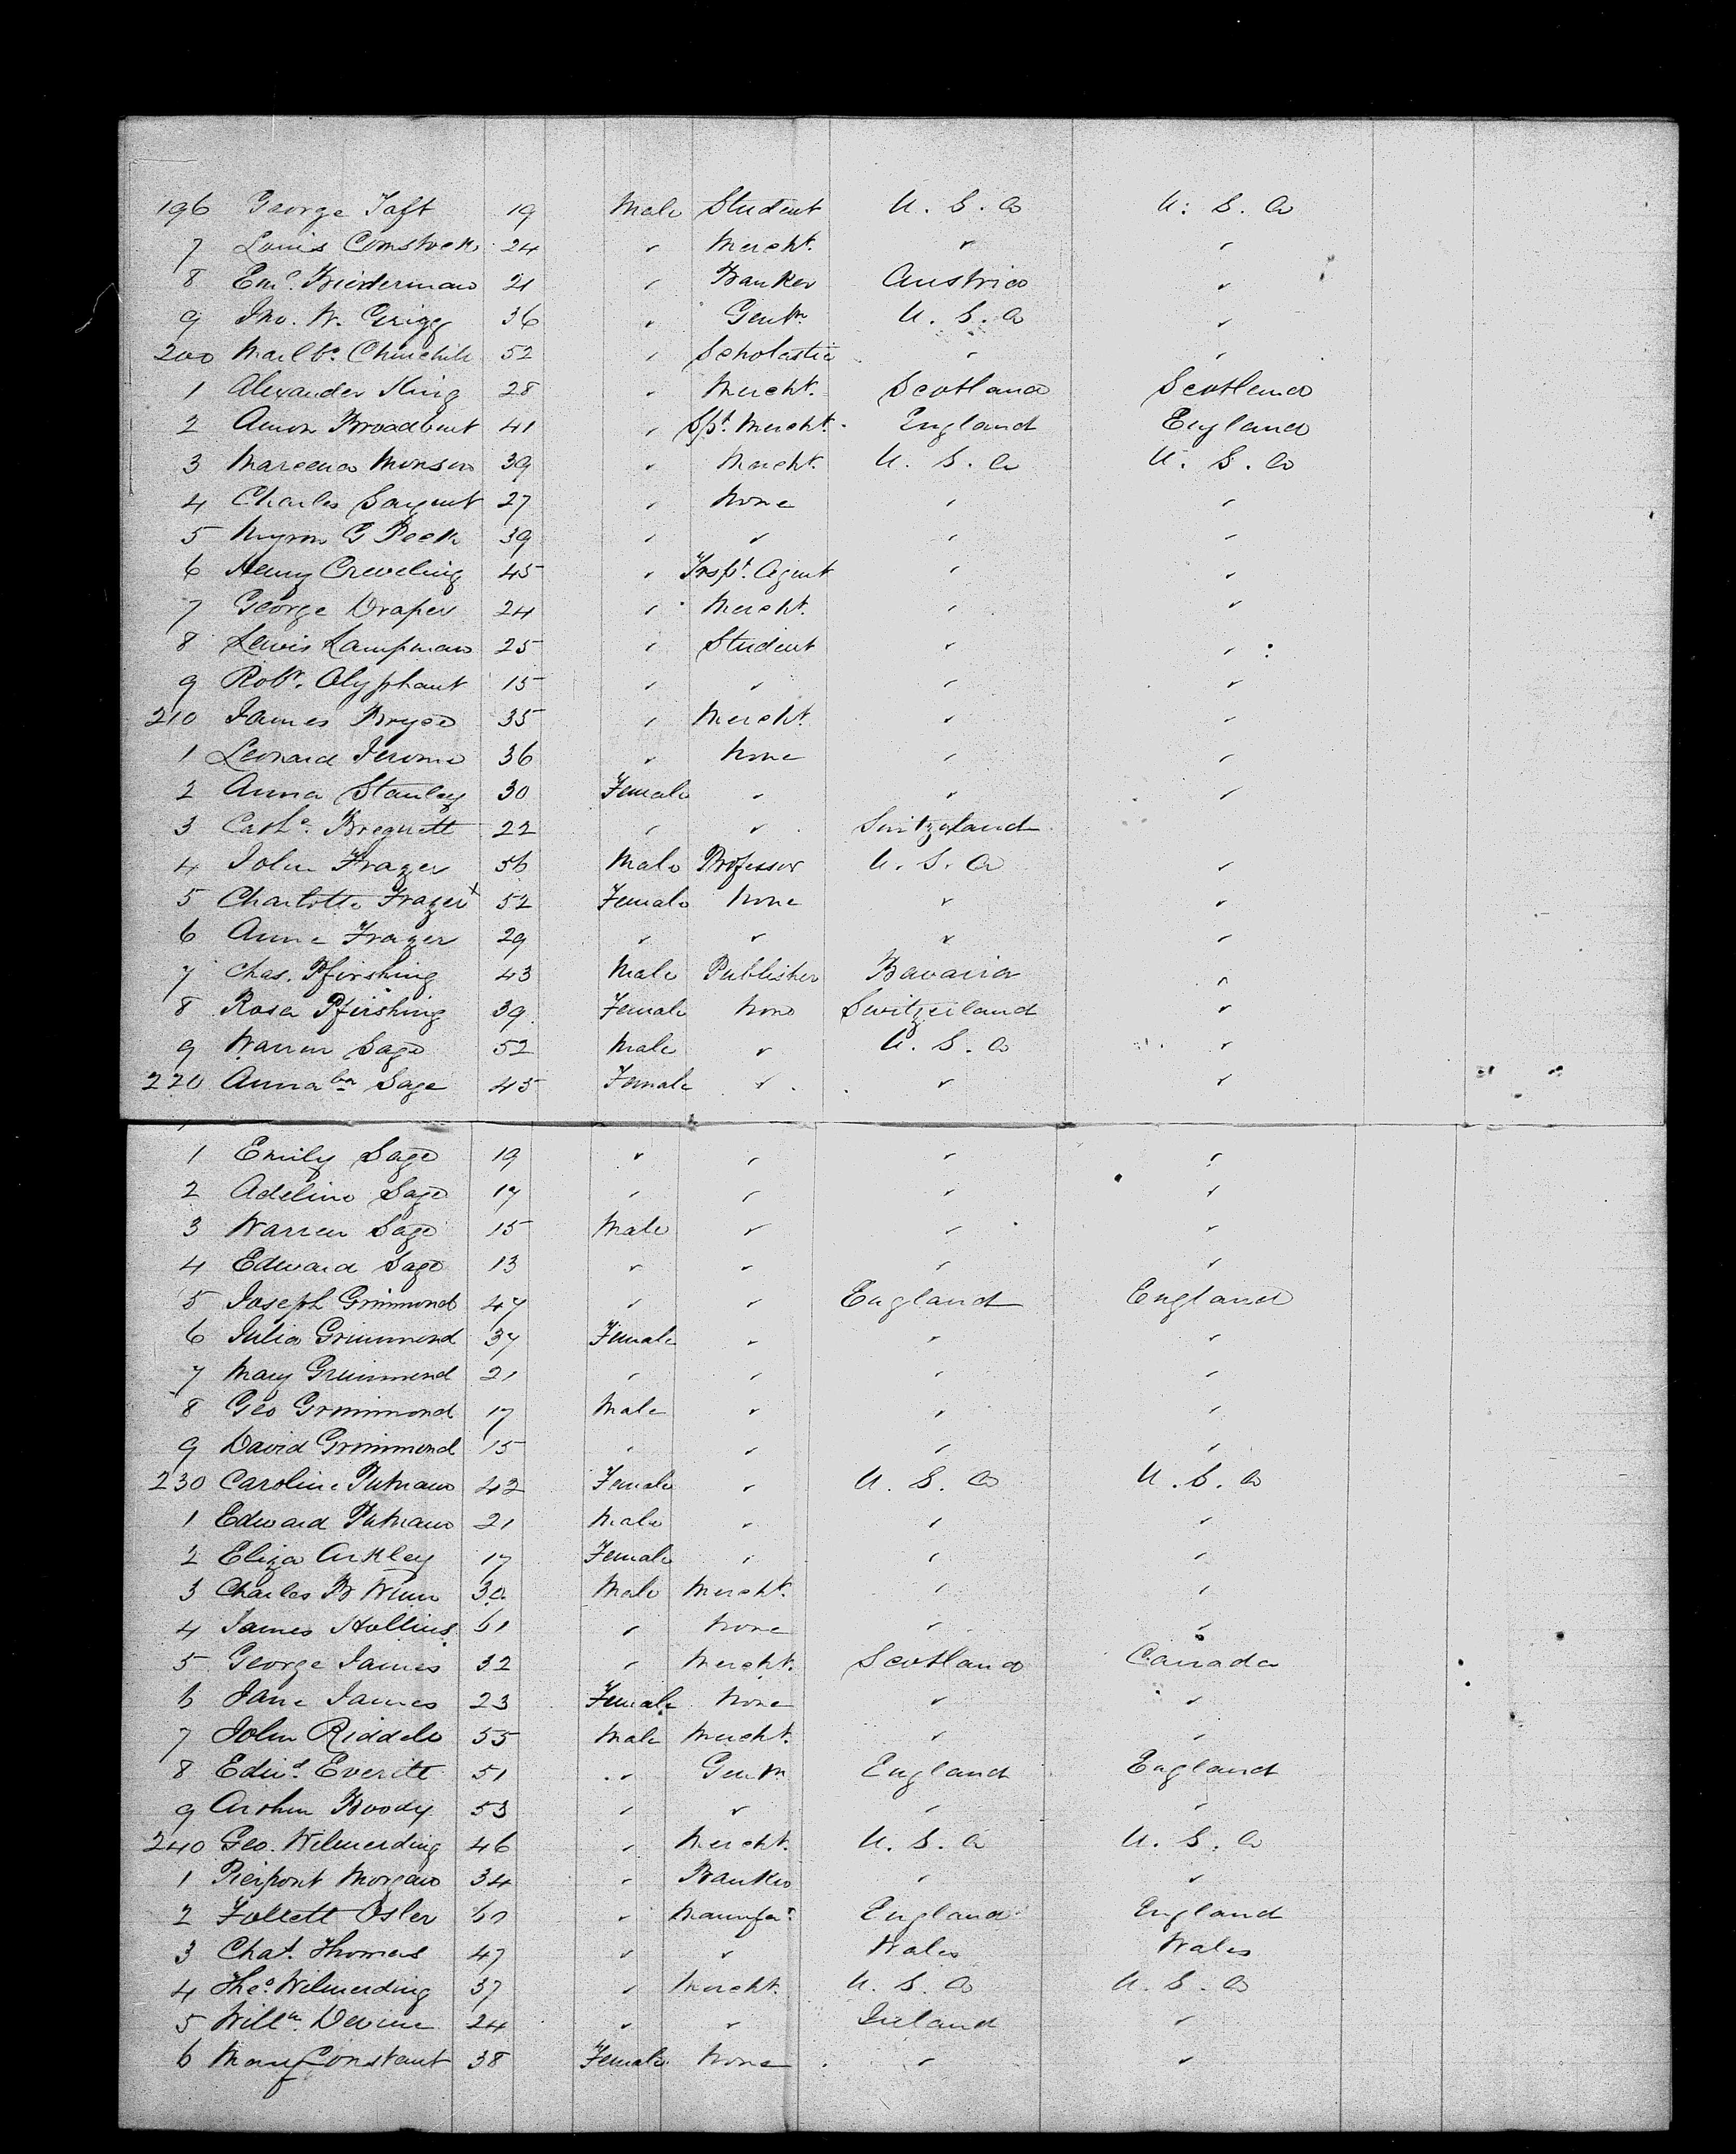 196 George Taft 19 Male Student U. S. A U. S. A
7 Louis Comstock 24 " Mercht. " "
8 Em.l Biederman 21 " Banker Austria "
9 Jno. W. Grigg 36 " Gentn. U. S. A "
200 Churchill 52 " Scholastic " "
1 Alexander King 28 " Mercht. Scotland Scotland
2 Broadbent 41 " Spt. Mercht. England England
3 Monson 39 " Mercht. U. S. A U. S. A
4 Charles Sargent 27 " None " "
5 Myron G Peck 39 " " " "
6 Henry Creveling 45 " Trspt. Agent " "
7 George Draper 24 " Mercht. " "
8 Lewis Lampman 25 " Student " "
9 Robt. Olyphant 15 " " " "
210 James Bryce 35 " Mercht. " "
1 Leonard Jerome 36 " None " "
2 Anna Stanley 30 Female " " "
3 Cathe. Breguett 22 " " Switzerland
4 John Frazer 56 Male Professor U. S. A "
5 Charlotte Frazer x 52 Female None " "
6 Anne Frazer 29 " " " "
7 Chas. Pfirshing 43 Male Publisher Bavaria "
8 Rosa Pfirshing 39 Female None Switzerland "
9 Warren Sage 52 Male " U. S. A "
220 Annabla Sage 45 Female " " "
1 Emily Sage 19 " " " "
2 Adeline Sage 17 " " " "
3 Warren Sage 15 Male " " "
4 Edward Sage 13 " " " "
5 Joseph Grimmond 47 " " England England
6 Julia Grimmond 37 Female " " "
7 Mary Grimmond 21 " " " "
8 Geo Grimmond 17 Male " " "
9 David Grimmond 15 " " " "
230 Caroline Putnam 42 Female " U. S. A U. S. A
1 Edward Putnam 21 Male " " "
2 Eliza Arkley 17 Female " " "
3 Charles B Winn 30 Male Mercht. " "
4 James Hollins 61 " None " "
5 George James 32 " Mercht. Scotland Canada
6 Jane James 23 Female None " "
7 John Riddell 55 Male Mercht. " "
8 Edwd. Everitt 51 " Gentn England England
9 Arthur Boody 53 " " " "
240 Geo. Wilmerding 46 " Mercht. U. S. A U. S. A
1 Pierpont Morgan 34 " Banker " "
2 Follett Osler 60 " Manufar. England England
3 Chas. Thomas 47 " " Wales Wales
4 Theo. Wilmerding 37 " Mercht. U. S. A U. S. A
5 Willm. Devine 24 " " Ireland "
6 Mary Constant 38 Female None " "